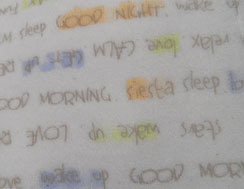 sleep GOOD NIGHT. wake up
relax love CALM GET UP
OOD MORNING. siesta sleep lo
stars wake up LOVE
ove wake up GOOD MOR